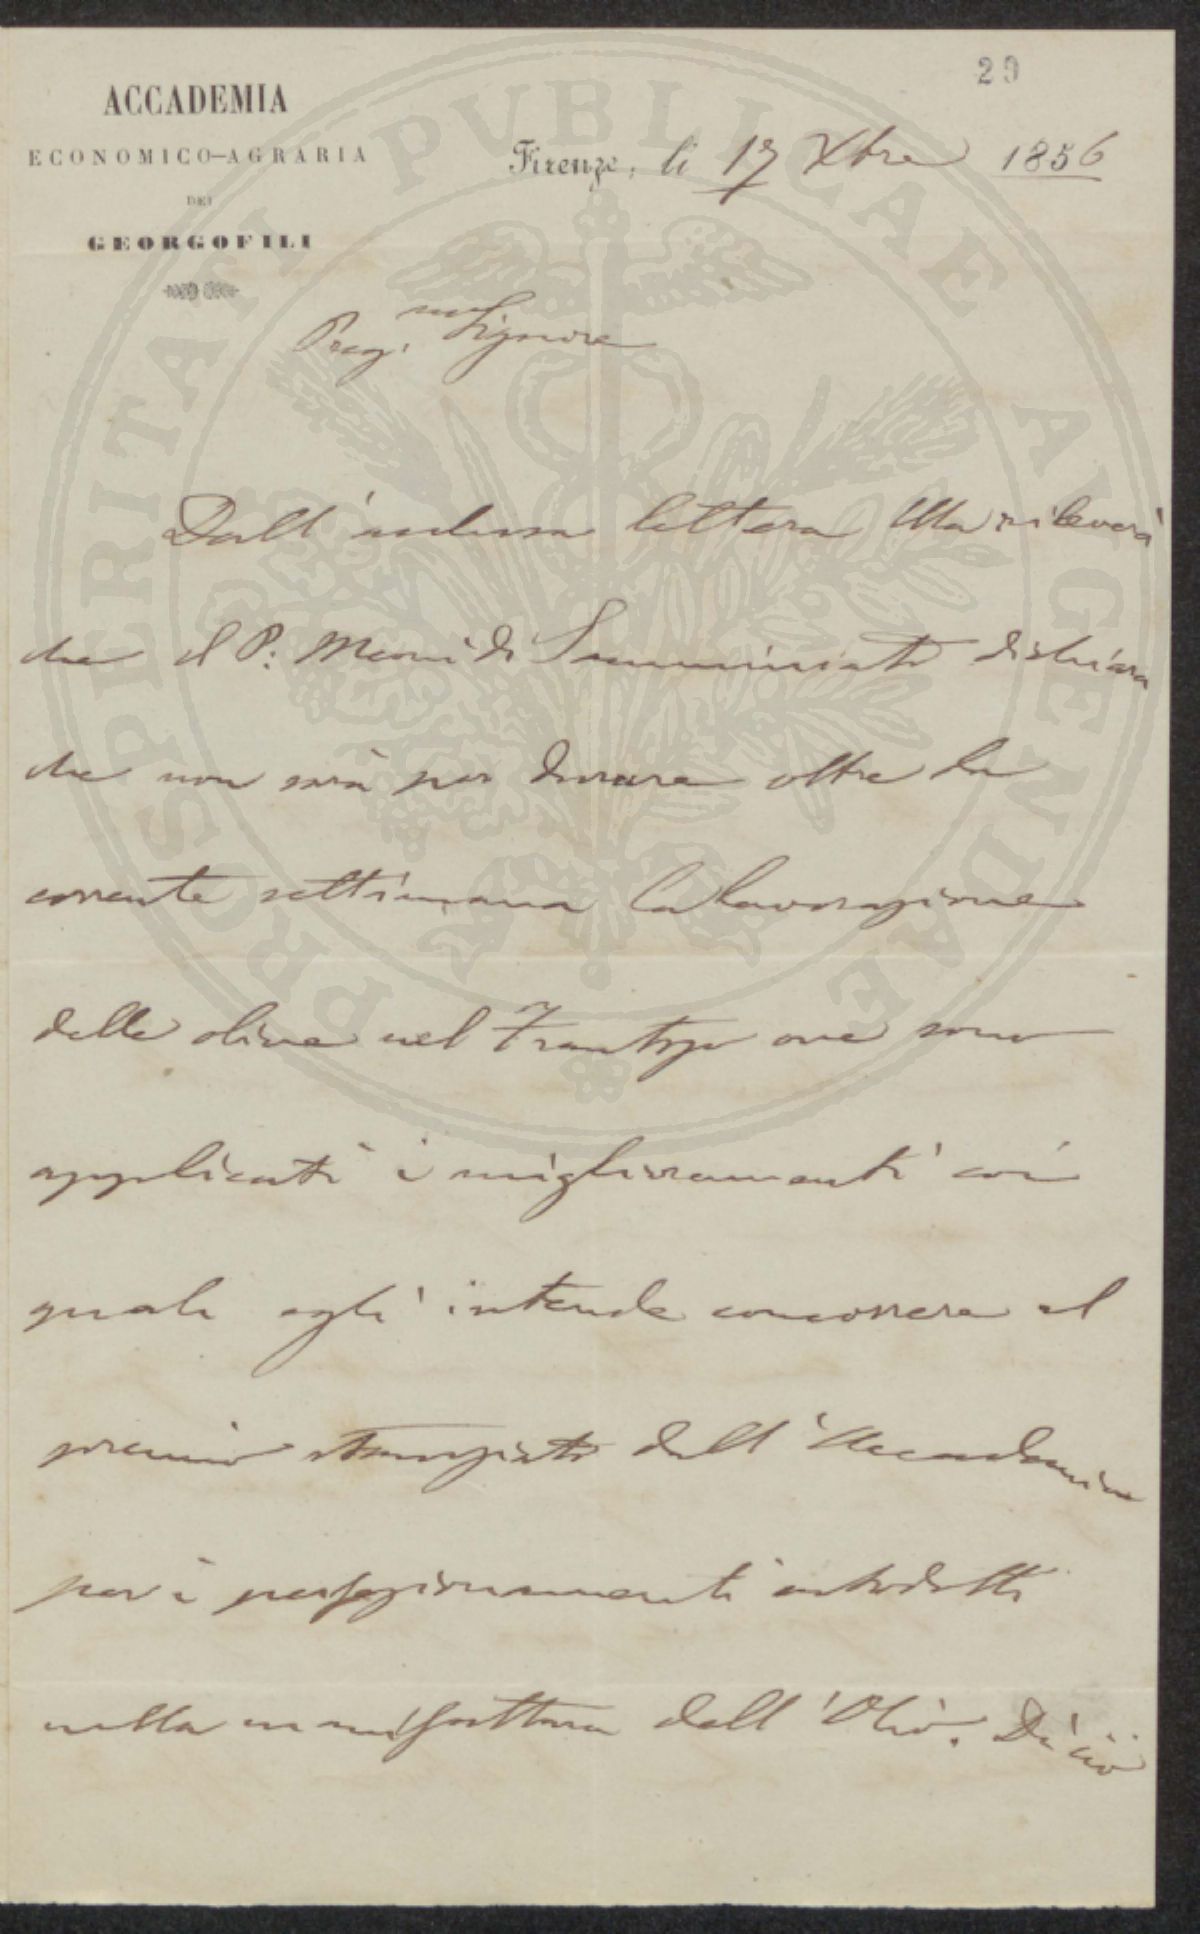 29
ACCADEMIA
ECONOMICO-AGRARIA
DEI
GEORGOFILI
Firenze, li 17 Xbre 1856
Preg.mo Signore
Dall'inclusa lettera Ella rileverà
che il P: Meoni di Samminiato dichiara
che non sarà per durare oltre la
corrente settimana la lavorazione
delle olive nel Frantojo ove sono
applicati i miglioramenti coi
quali egli intende concorrere al
premio stanziato dall'Accademia
per i perfezionamenti introdotti
nella manifattura dell'Olio. Di ciò
PROSPERITATI PUBLICAE AUGENDAE